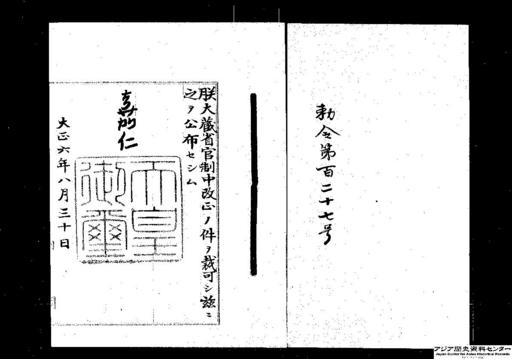 勅令第百二十七号
朕大蔵省官制中改正ノ件ヲ裁可シ茲ニ
之ヲ公布セシム
嘉仁
天皇
御璽
大正六年八月三十日
アジア歴史資料センター
Japan Center for Asian Historical Records